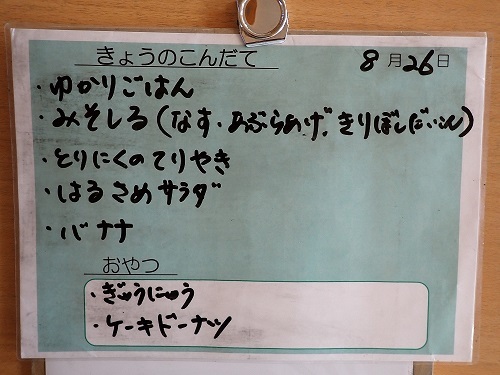 きょうのこんだて 8月26日
・ゆかりごはん
・みそしる(なす・あぶらあげ、きりぼしだいこん)
・とりにくのてりやき
・はるさめサラダ
・バナナ
おやつ
・ぎゅうにゅう
・ケーキドーナツ